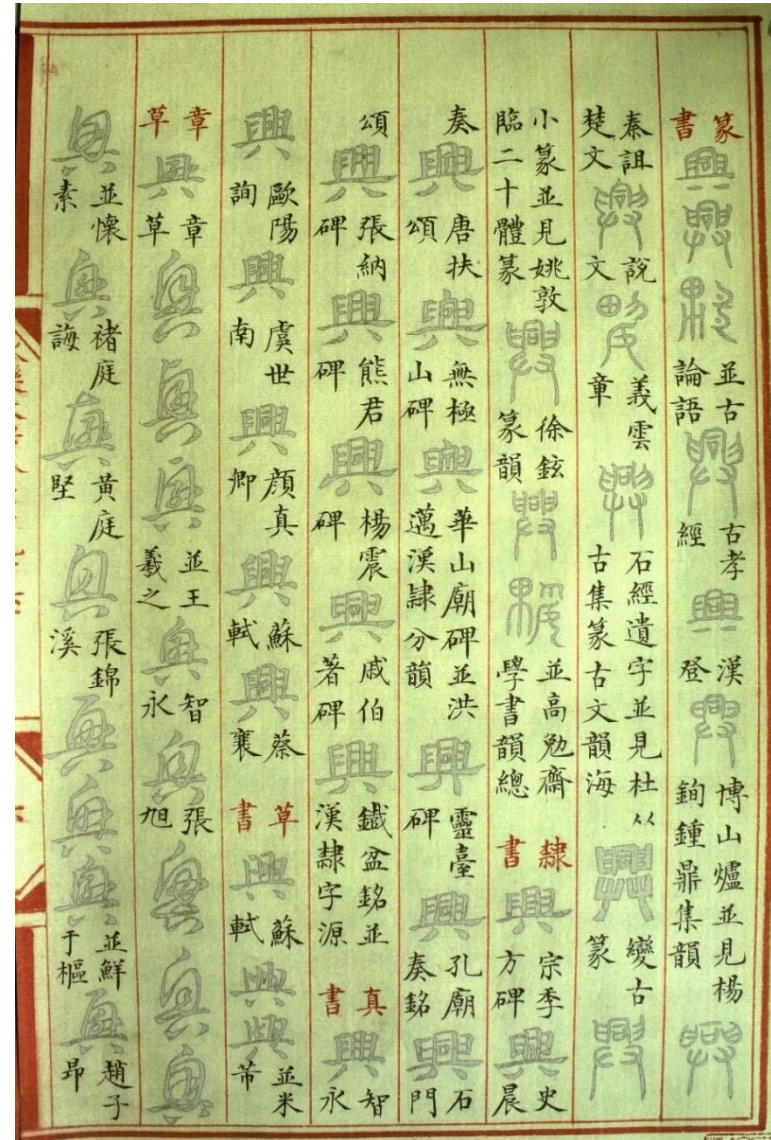 篆書興興興並古論語興古孝經興漢登興博山爐並見楊銁鍾鼎集韻興
秦詛楚文興說文興義雲章興石經遺字並見杜从古集篆古文韻海興變古篆興
小篆並見姚敦臨二十體篆興徐鉉篆韻興興並高勉齋學書韻總隸書興宗季方碑興史晨
奏興唐扶頌興無極山碑興華山廟碑並洪邁漢隸分韻興靈臺碑興孔廟奏銘興石門
頌興張納碑興熊君碑興楊震碑興戚伯著碑興鐵盆銘並漢隸字源真書興智永
興歐陽詢興虞世南興顔真卿興蘇軾興蔡襄草書興蘇軾興興並米芾
章草興章草興興興並王羲之興智永興張旭興興興
興並懷素興褚庭誨興黃庭堅興張錦溪興興興並鮮于樞興趙子昂